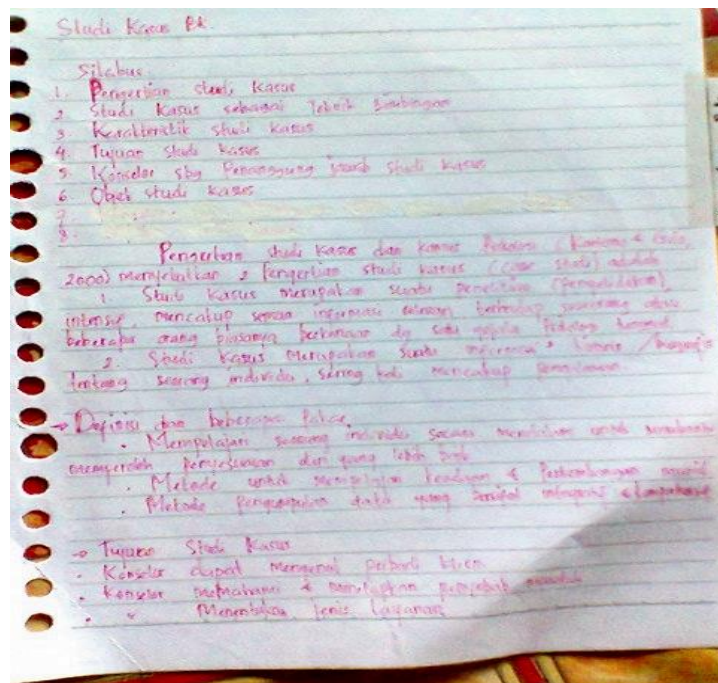 Studi Kasus BK.
Silabus
1. Pengertian studi kasus
2. Studi Kasus sebagai Teknik Bimbingan
3. Karakteristik studi kasus
4. Tujuan studi kasus
5. Konselor sbg Penanggung jawab studi kasus
6. Objek studi kasus
7.
8.
Pengertian studi kasus dan kamus Psikologi (Kartono &
2000) menyebutkan 2 Pengertian studi kasus (case study) adalah
1. Studi Kasus merupakan suatu penelitian (penyelidikan)
intensif, mencakup semua informasi relevan terhadap seorang atau
beberapa orang biasanya berkenaan dg satu gejala Psikologi tunggal
2. Studi Kasus Merupakan suatu informasi
tentang seorang individu, sering kali mencakup
→ Definisi dan beberapa Pakar.
• Mempelajari seorang individu secara mendalam untuk membantu
memperoleh penyesuaian diri yang lebih baik
• Metode untuk mempelajari keadaan & Perkembangan
• Metode Pengumpulan data yang bersifat integratif &
→ Tujuan Studi Kasus
• Konselor dapat mengenal pribadi klien
• Konselor memahami & menetapkan penyebab masalah
• " Menentukan jenis layanan